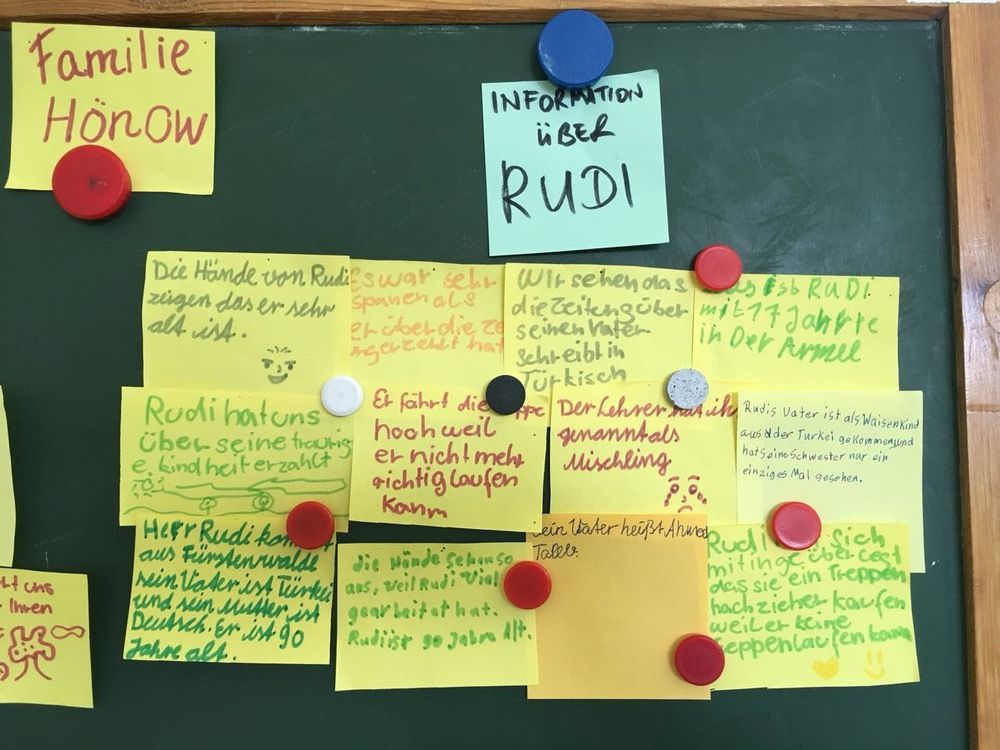 Familie
Hönow
INFORMATION
ÜBER
RUDI
Die Hände von Rudi
zeigen das er sehr
alt ist.
Es war sehr
spanen als
er über die
hat
Wir sehen das
die Zeitung über
seinen Vater
schreibt in
Türkisch
ist RUDI
mit 17 Jahrte
in Der Armee
Rudi hat uns
über seine traurig
e kindheit erzählt
Er fährt die
hoch weil
er nicht mehr
richtig laufen
kann
Der Lehrer hat ih
genannt als
Mischling
Rudis Vater ist als Waisenkind
aus der Turkei gekommen und
hat seine Schwester nur ein
einziges Mal gesehen.
Herr Rudi
aus Fürstenwalde
sein Vater ist Türke
und sein Mutter ist
Deutsch. Er ist 90
Jahre alt.
die Hände sehen so
aus, weil Rudi Vial
gearbeitat hat.
Rudi ist 90 Jahre Alt.
sein Vater heißt Ahmed
Talib.
Rudi sich
mit inge überlegt
das sie ein Treppen
hochzieher kaufen
weil er keine
teppenlaufen kann
uns
Ihren